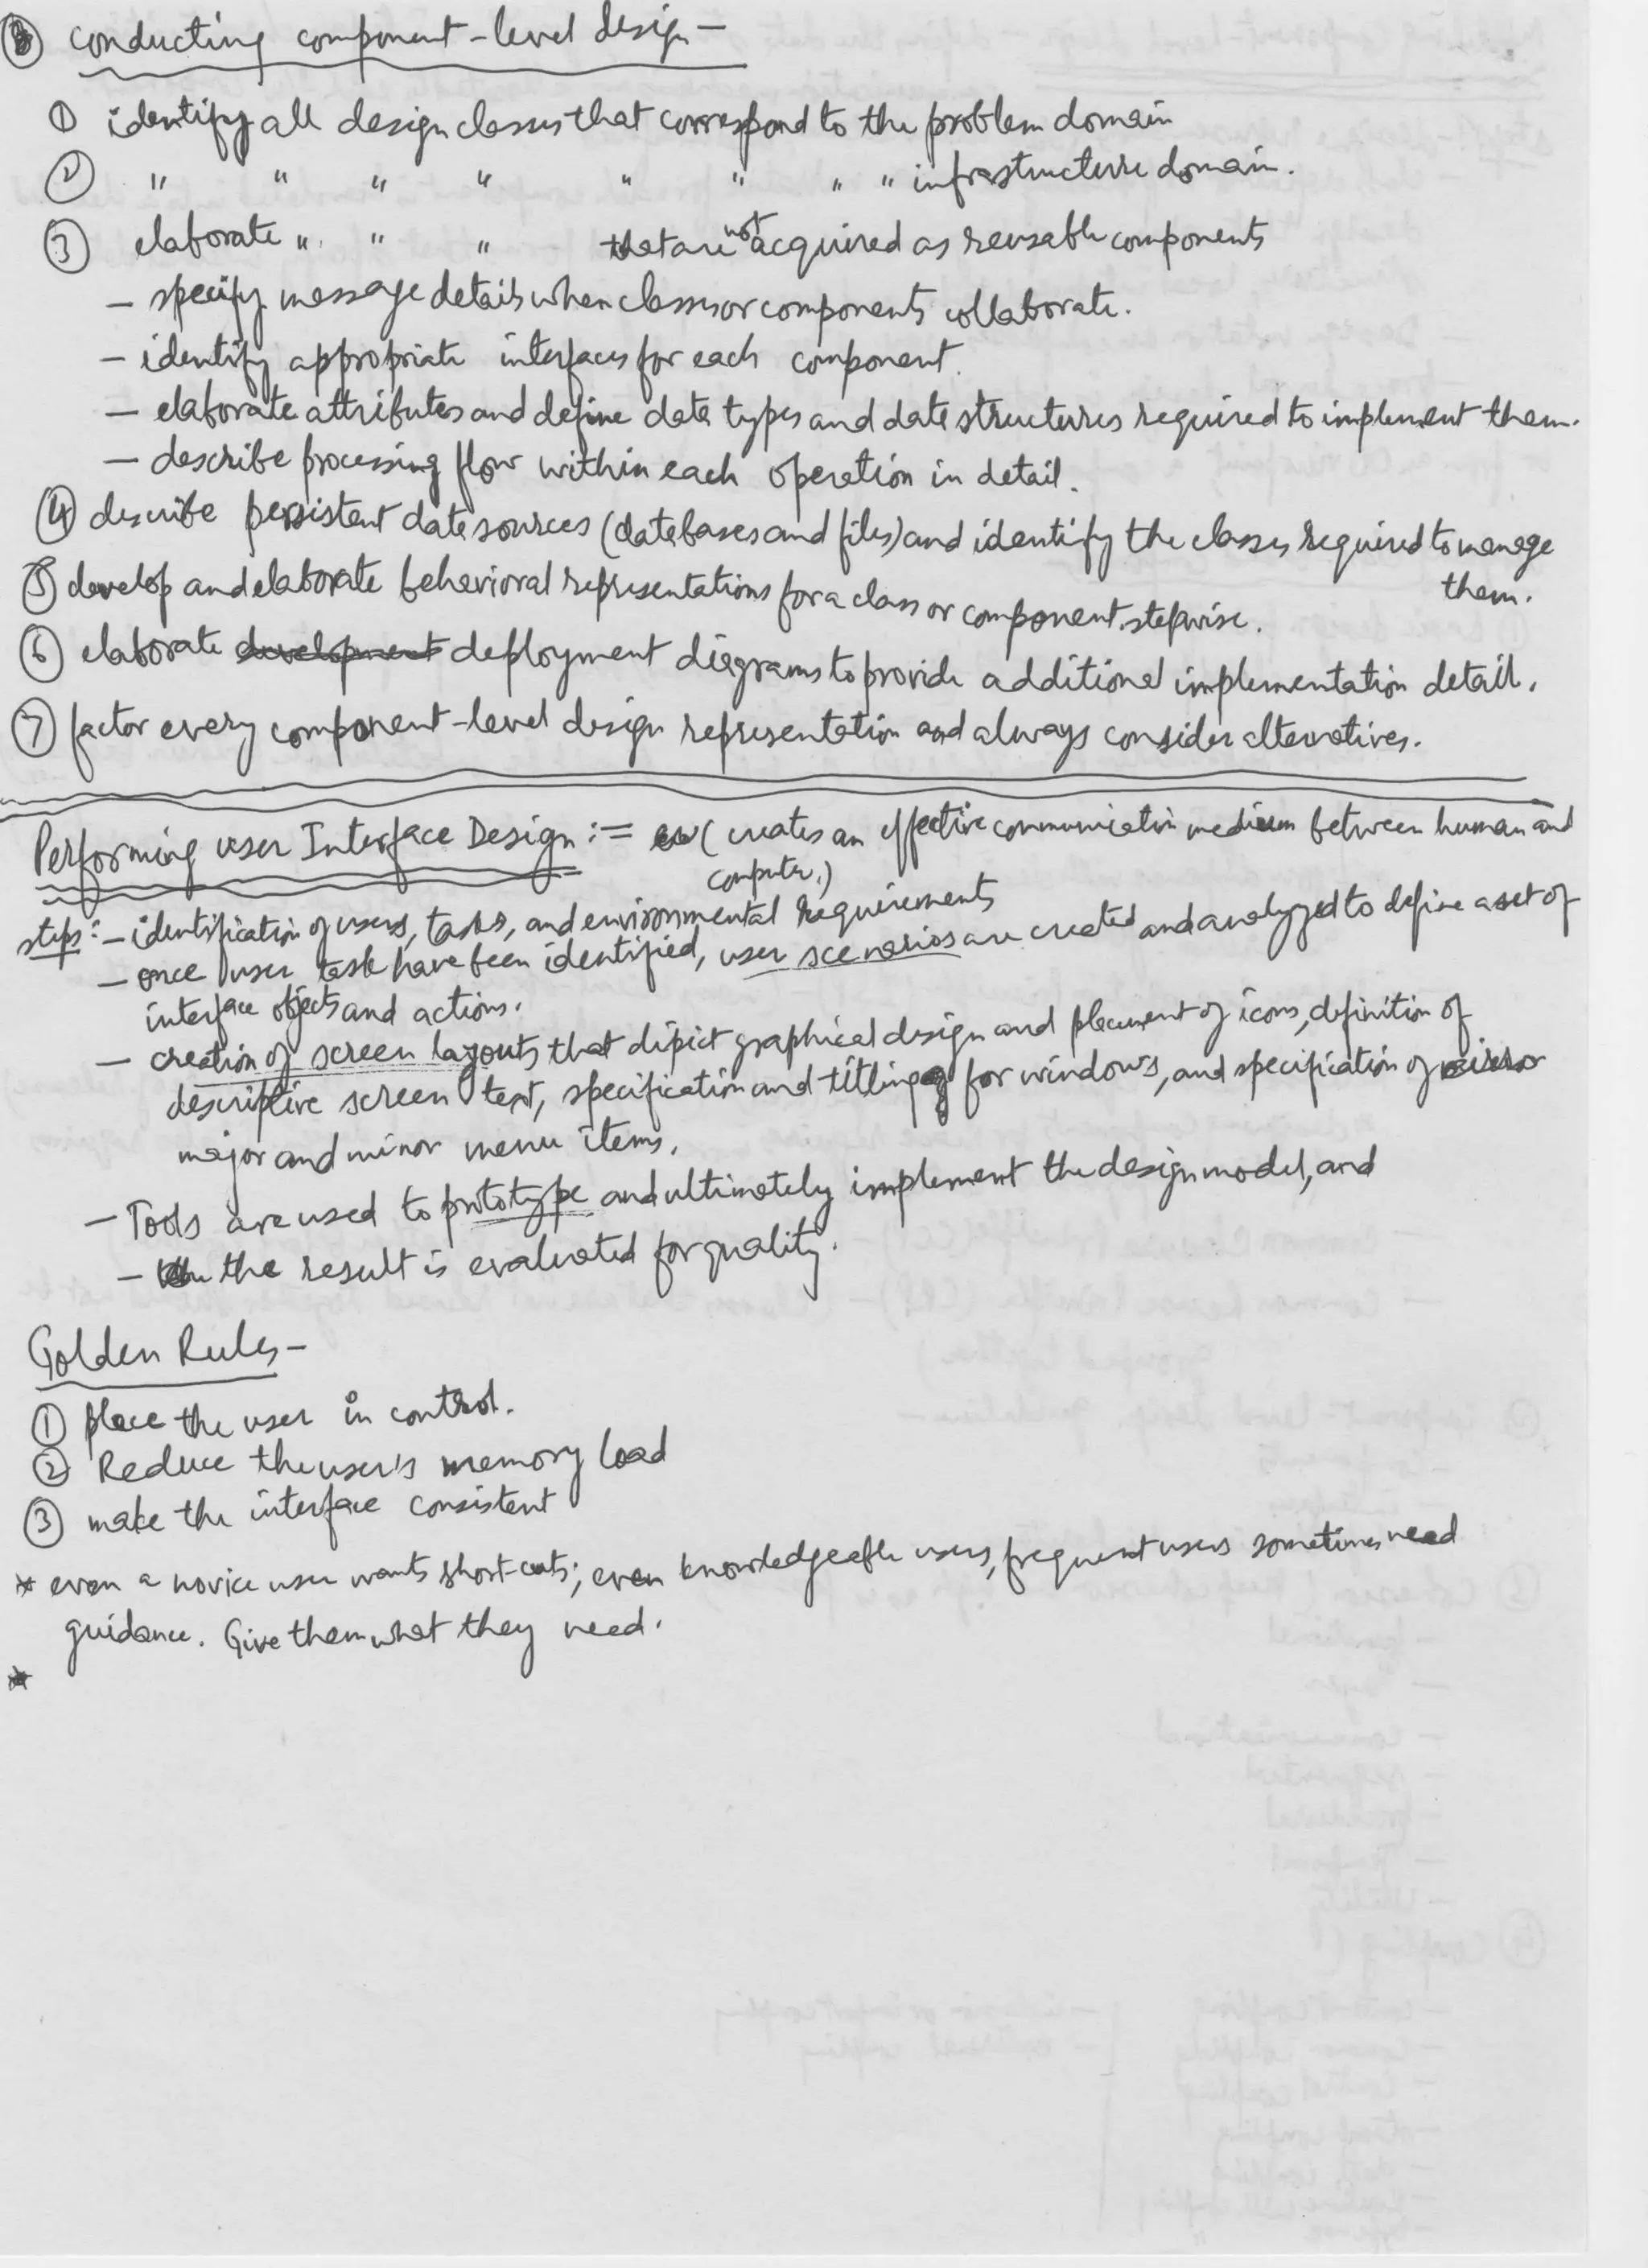 conducting component-level design -
① identify all design classes that correspond to the problem domain
② " " " " " " " " infrastructure domain.
③ elaborate " " " that are not acquired as reusable components
- specify message details when classes or components collaborate.
- identify appropriate interfaces for each component.
- elaborate attributes and define data types and data structures required to implement them.
- describe processing flow within each operation in detail.
④ describe persistent data sources (databases and files) and identify the classes required to manage
them.
⑤ develop and elaborate behavioral representations for a class or component stepwise.
⑥ elaborate development deployment diagrams to provide additional implementation detail.
⑦ factor every component-level design representation and always consider alternatives.
Performing user Interface Design := (creates an effective communication medium between human and
computer.)
steps:- identification of users, tasks, and environmental requirements
- once user task have been identified, user scenarios are created and analyzed to define a set of
interface objects and actions.
- creation of screen layouts that dipict graphical design and placement of icons, definition of
descriptive screen text, specification and titling for windows, and specification of
major and minor menu items.
- Tools are used to prototype and ultimately implement the design model, and
- the result is evaluated for quality.
Golden Rules -
① place the user in control.
② Reduce the user's memory load
③ make the interface consistent
* even a novice user wants short-cuts; even knowledgeable users, frequent users sometimes need
guidance. Give them what they need.
*